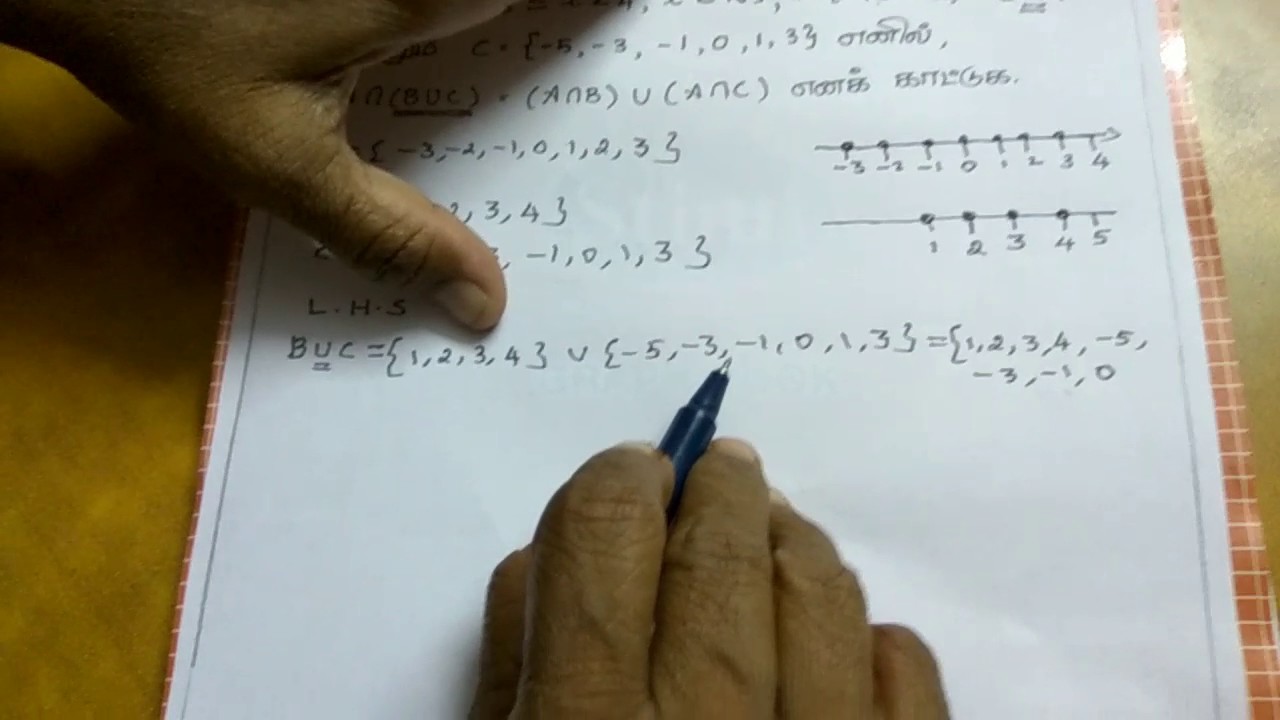 C = {-5, -3, -1, 0, 1, 3} எனில்,
∩(B∪C) = (A∩B) ∪ (A∩C) எனக் காட்டுக.
{ -3, -2, -1, 0, 1, 2, 3 }
-3 -2 -1 0 1 2 3 4
2, 3, 4 }
1 2 3 4 5
, -1, 0, 1, 3 }
L.H.S
B∪C = {1, 2, 3, 4} ∪ {-5, -3, -1, 0, 1, 3} = {1, 2, 3, 4, -5,
-3, -1, 0